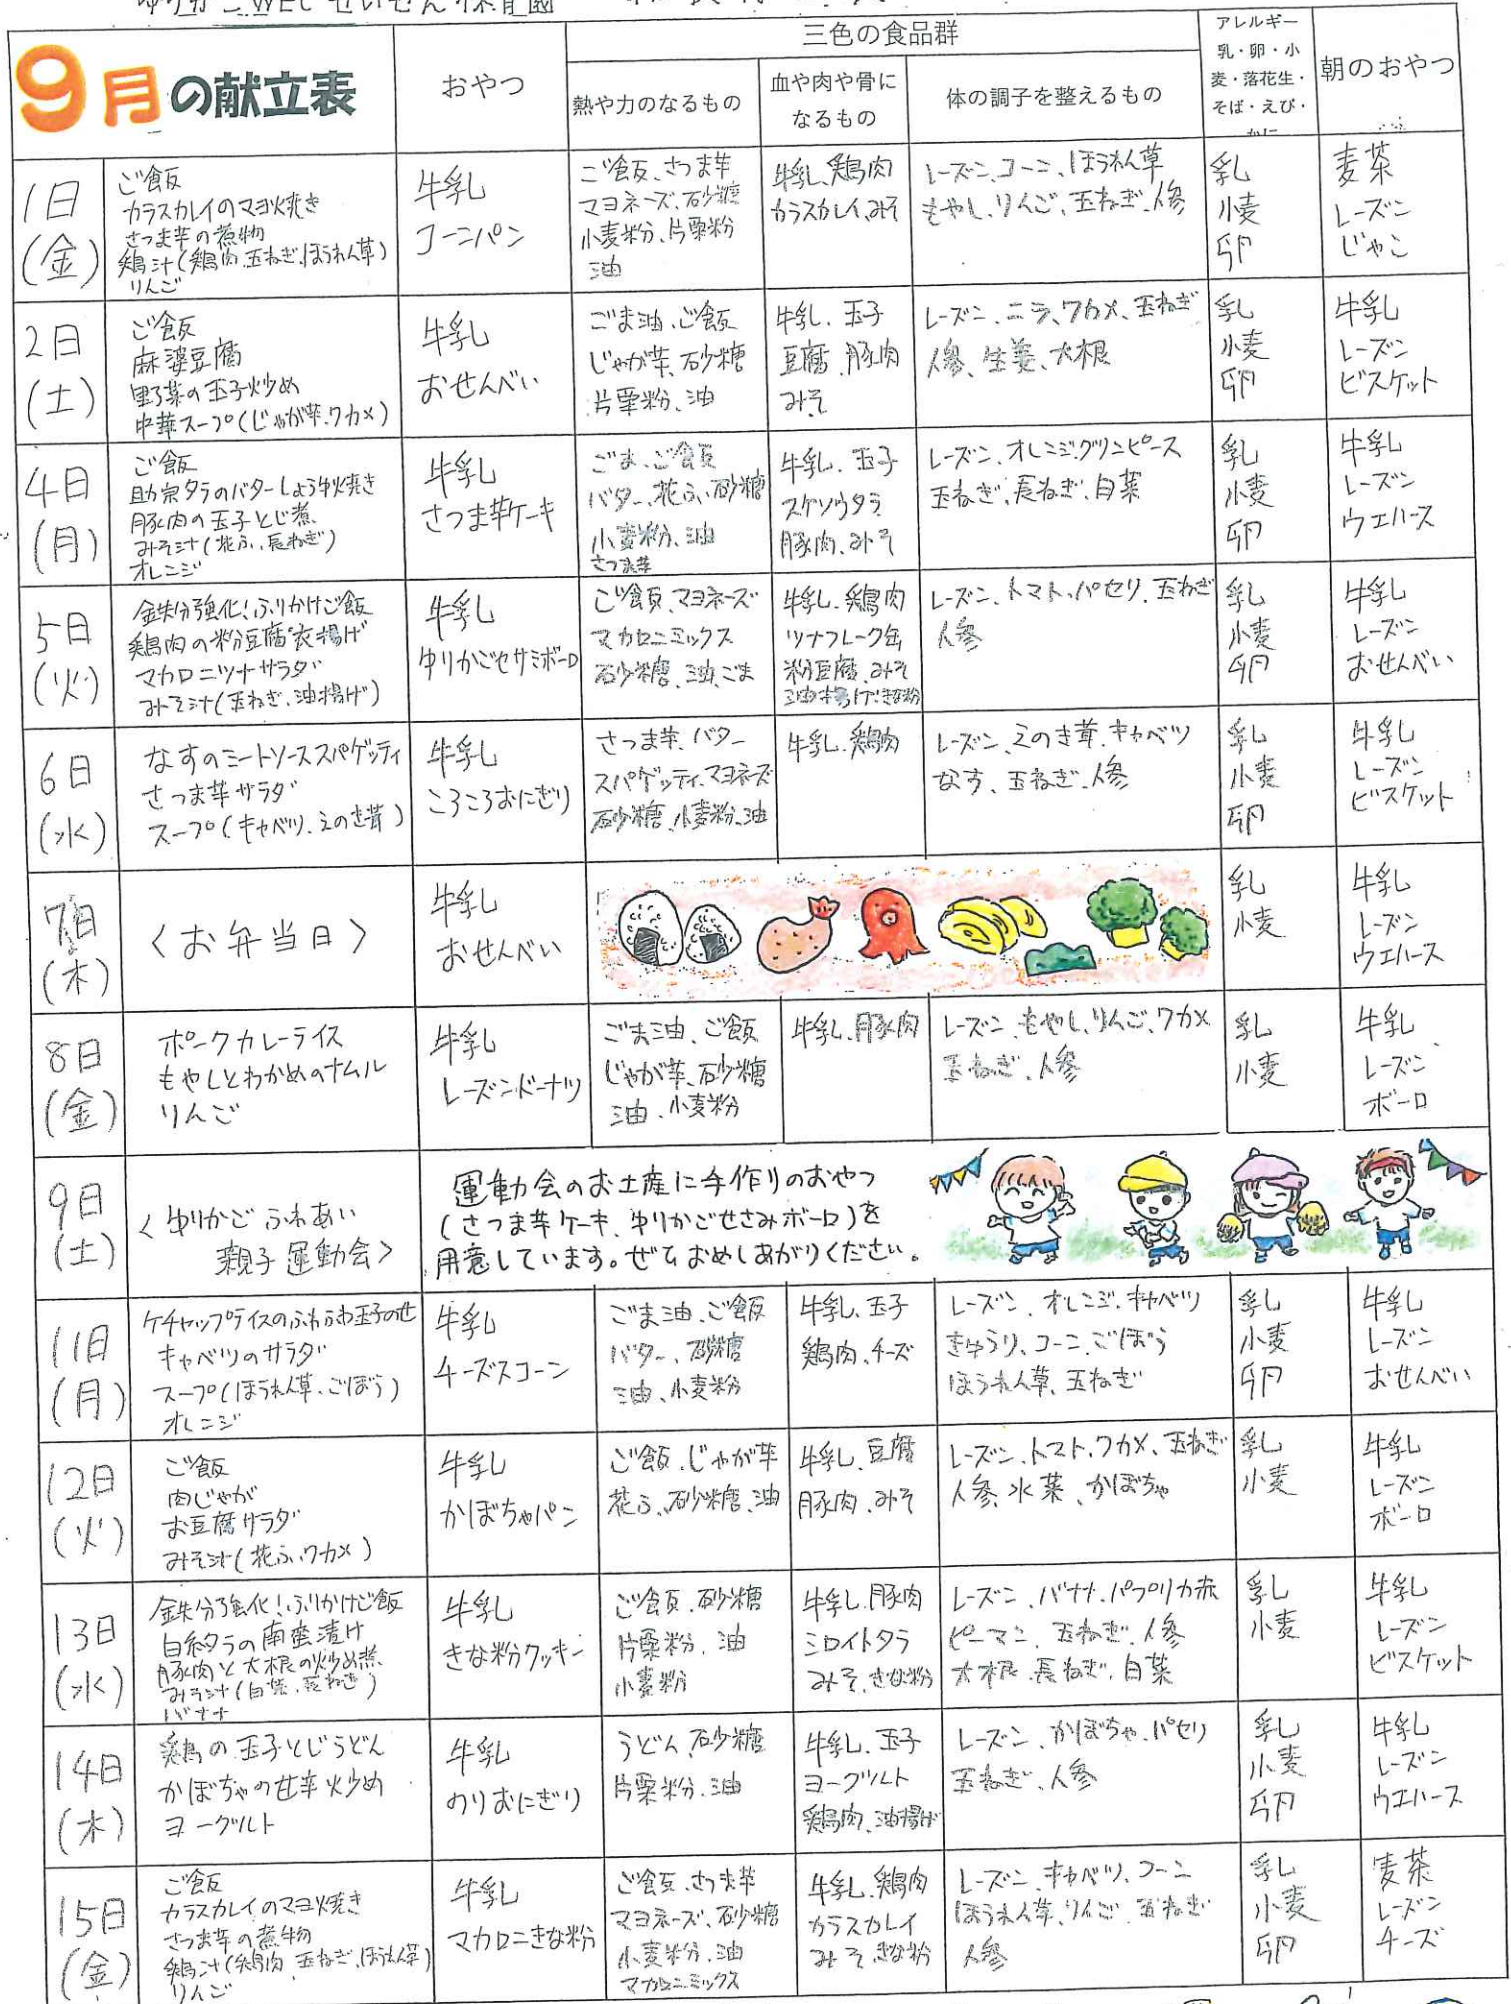 ゆりかごWEC せいせん保育園
9月の献立表
おやつ
三色の食品群
熱や力のなるもの
血や肉や骨に
なるもの
体の調子を整えるもの
アレルギー
乳・卵・小
麦・落花生・
そば・えび・
かに
朝のおやつ
1日
(金)
ご飯
カラスカレイのマヨ焼き
さつま芋の煮物
鶏汁(鶏肉、玉ねぎ、ほうれん草)
りんご
牛乳
コーンパン
ご飯、さつま芋
マヨネーズ、砂糖
小麦粉、片栗粉
油
牛乳、鶏肉
カラスカレイ、みそ
レーズン、コーン、ほうれん草
もやし、りんご、玉ねぎ、人参
乳
小麦
卵
麦茶
レーズン
じゃこ
2日
(土)
ご飯
麻婆豆腐
野菜の玉子炒め
中華スープ(じゃが芋、ワカメ)
牛乳
おせんべい
ごま油、ご飯
じゃが芋、砂糖
片栗粉、油
牛乳、玉子
豆腐、豚肉
みそ
レーズン、ニラ、ワカメ、玉ねぎ
人参、生姜、大根
乳
小麦
卵
牛乳
レーズン
ビスケット
4日
(月)
ご飯
助宗タラのバターしょうゆ焼き
豚肉の玉子とじ煮
みそ汁(花ふ、長ねぎ)
オレンジ
牛乳
さつま芋ケーキ
ごま、ご飯
バター、花ふ、砂糖
小麦粉、油
さつま芋
牛乳、玉子
スケソウタラ
豚肉、みそ
レーズン、オレンジ、グリンピース
玉ねぎ、長ねぎ、白菜
乳
小麦
卵
牛乳
レーズン
ウエハース
5日
(火)
鉄分強化!ふりかけご飯
鶏肉の粉豆腐衣揚げ
マカロニツナサラダ
みそ汁(玉ねぎ、油揚げ)
牛乳
ゆりかごセサミボーロ
ご飯、マヨネーズ
マカロニミックス
砂糖、油、ごま
牛乳、鶏肉
ツナフレーク缶
粉豆腐、みそ
油揚げ、きな粉
レーズン、トマト、パセリ、玉ねぎ
人参
乳
小麦
卵
牛乳
レーズン
おせんべい
6日
(水)
なすのミートソーススパゲッティ
さつま芋サラダ
スープ(キャベツ、えのき茸)
牛乳
ころころおにぎり
さつま芋、バター
スパゲッティ、マヨネーズ
砂糖、小麦粉、油
牛乳、鶏肉
レーズン、えのき茸、キャベツ
なす、玉ねぎ、人参
乳
小麦
卵
牛乳
レーズン
ビスケット
7日
(木)
〈お弁当日〉
牛乳
おせんべい
乳
小麦
牛乳
レーズン
ウエハース
8日
(金)
ポークカレーライス
もやしとわかめのナムル
りんご
牛乳
レーズンドーナツ
ごま油、ご飯
じゃが芋、砂糖
油、小麦粉
牛乳、豚肉
レーズン、もやし、りんご、ワカメ
玉ねぎ、人参
乳
小麦
牛乳
レーズン
ボーロ
9日
(土)
〈ゆりかごふれあい
親子運動会〉
運動会のお土産に手作りのおやつ
(さつま芋ケーキ、ゆりかごせさみボーロ)を
用意しています。ぜひおめしあがりください。
11日
(月)
ケチャップライスのふわふわ玉子のせ
キャベツのサラダ
スープ(ほうれん草、ごぼう)
オレンジ
牛乳
チーズスコーン
ごま油、ご飯
バター、砂糖
油、小麦粉
牛乳、玉子
鶏肉、チーズ
レーズン、オレンジ、キャベツ
きゅうり、コーン、ごぼう
ほうれん草、玉ねぎ
乳
小麦
卵
牛乳
レーズン
おせんべい
12日
(火)
ご飯
肉じゃが
お豆腐サラダ
みそ汁(花ふ、ワカメ)
牛乳
かぼちゃパン
ご飯、じゃが芋
花ふ、砂糖、油
牛乳、豆腐
豚肉、みそ
レーズン、トマト、ワカメ、玉ねぎ
人参、水菜、かぼちゃ
乳
小麦
牛乳
レーズン
ボーロ
13日
(水)
鉄分強化!ふりかけご飯
白糸タラの南蛮漬け
豚肉と大根の炒め煮
みそ汁(白菜、長ねぎ)
バナナ
牛乳
きな粉クッキー
ご飯、砂糖
片栗粉、油
小麦粉
牛乳、豚肉
シロイトタラ
みそ、きな粉
レーズン、バナナ、パプリカ赤
ピーマン、玉ねぎ、人参
大根、長ねぎ、白菜
乳
小麦
牛乳
レーズン
ビスケット
14日
(木)
鶏の玉子とじうどん
かぼちゃの甘辛炒め
ヨーグルト
牛乳
のりおにぎり
うどん、砂糖
片栗粉、油
牛乳、玉子
ヨーグルト
鶏肉、油揚げ
レーズン、かぼちゃ、パセリ
玉ねぎ、人参
乳
小麦
卵
牛乳
レーズン
ウエハース
15日
(金)
ご飯
カラスカレイのマヨ焼き
さつま芋の煮物
鶏汁(鶏肉、玉ねぎ、ほうれん草)
りんご
牛乳
マカロニきな粉
ご飯、さつま芋
マヨネーズ、砂糖
小麦粉、油
マカロニミックス
牛乳、鶏肉
カラスカレイ
みそ、きな粉
レーズン、キャベツ、コーン
ほうれん草、りんご、玉ねぎ
人参
乳
小麦
卵
麦茶
レーズン
チーズ